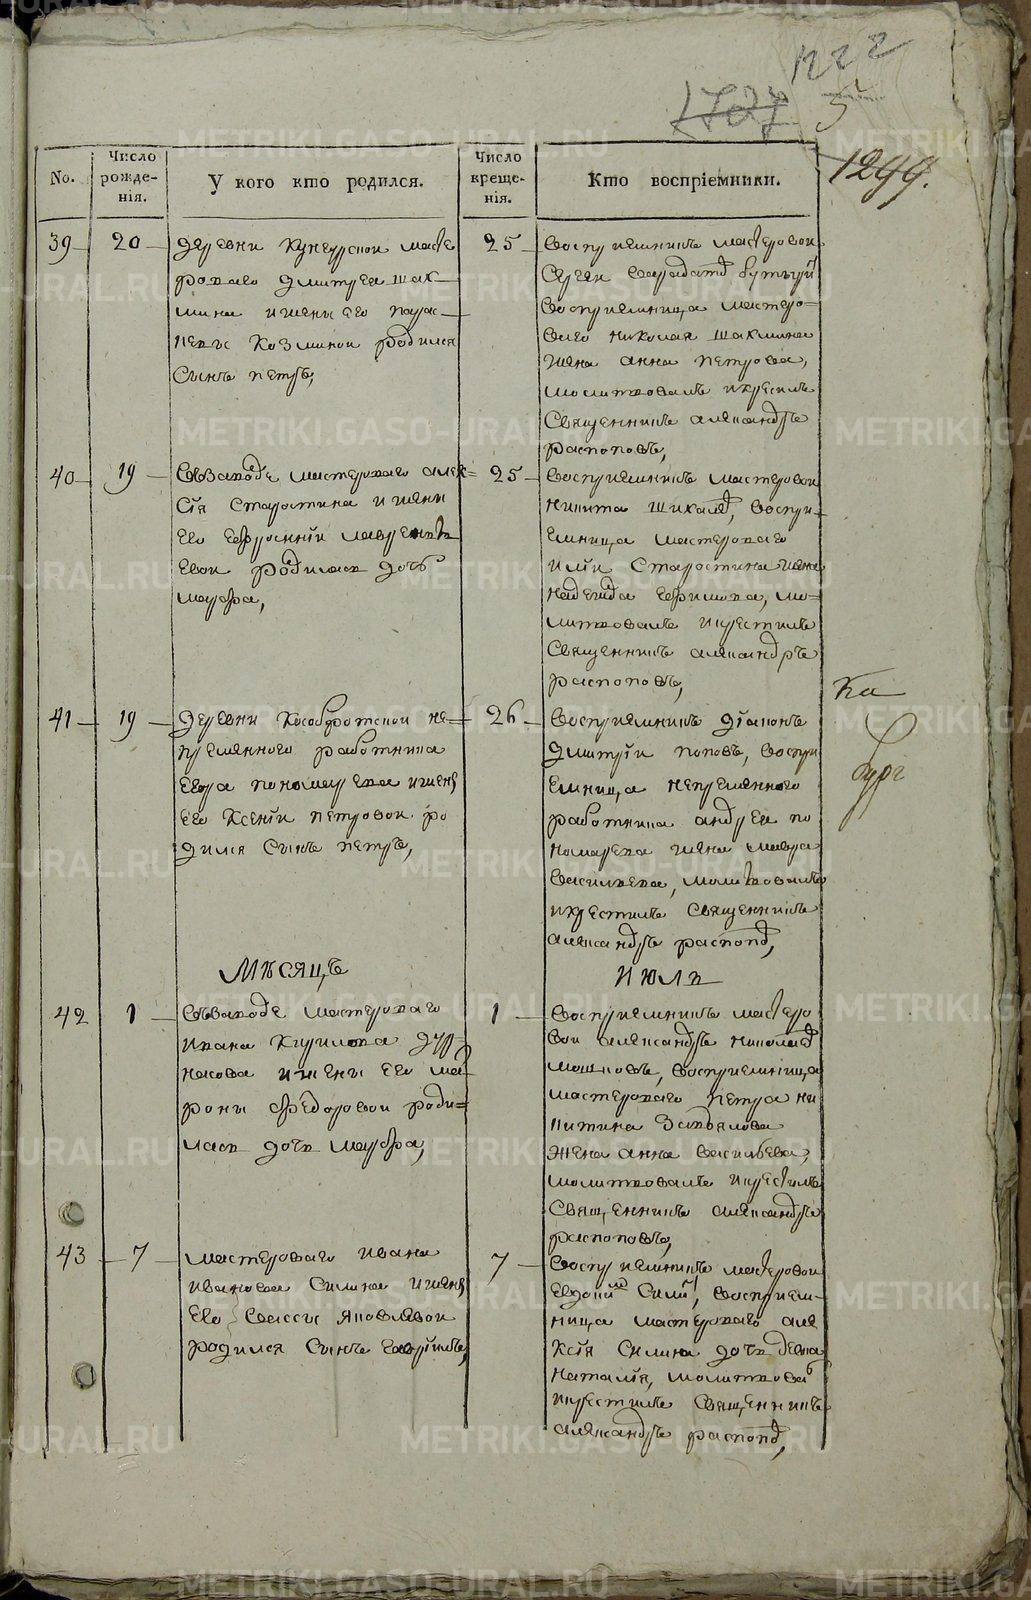 1222
1727
5
1299.
No.
Число рожденія.
У кого кто родился.
Число крещенія.
Кто воспріемники.
39
20
деревни Кунгурской масте
роваго Дмитрея Шах-
мина и жены его парас-
певы Козминой родился
Сынъ петръ,
25
Воспріемникъ мастеровой
Сергей
Воспріемница мастеро-
ваго николая шахмина
жена анна петрова,
молитвовалъ и крестилъ
Священникъ александръ
распоповъ,
40
19
Въ Заводе мастероваго алек=
сія Старостина и жены
его Ефросиніи лаврентье
евой родилась дочь
мавра,
25
Воспріемникъ мастеровой
никита, Воспрі-
емница мастероваго
иліи Старостина жена
надежда Ефимова, мо-
литвовалъ и крестилъ
Священникъ александръ
распоповъ,
41
19
деревни Кособродской не=
пременного работника
Егора пономарева и жены
его Ксеніи петровой ро
дился Сынъ петръ,
26
Воспріемникъ діаконъ
дмитрій поповъ, воспрі
емница непременного
работника андрея по
номарева жена мавра
васильева, молитвовалъ
и крестилъ Священникъ
александръ распопов,
Ка
Мѣсяцъ
Июль
42
1
Въ Заводе мастероваго
ивана Кирилова
насова и жены его ма-
троны Федоровой роди=
лась дочь мавра,
1
Воспріемникъ мастеро
вой александръ николаев
мошковъ, воспріемница
мастероваго петра ни
китина Завьялова
жена анна васильева,
молитвовалъ и крестилъ
Священникъ александръ
распоповъ,
43
7
мастероваго ивана
иванова Силина и жены
его Вассы яковлевой
родился Сынъ гавріилъ,
7
Воспріемникъ мастеровой
Евдоким Силин, воспріем-
ница мастероваго але
ксія Силина дочь девка
наталія, молитвовал
и крестилъ Священникъ
александръ распопов,
METRIKI.GASO-URAL.RU